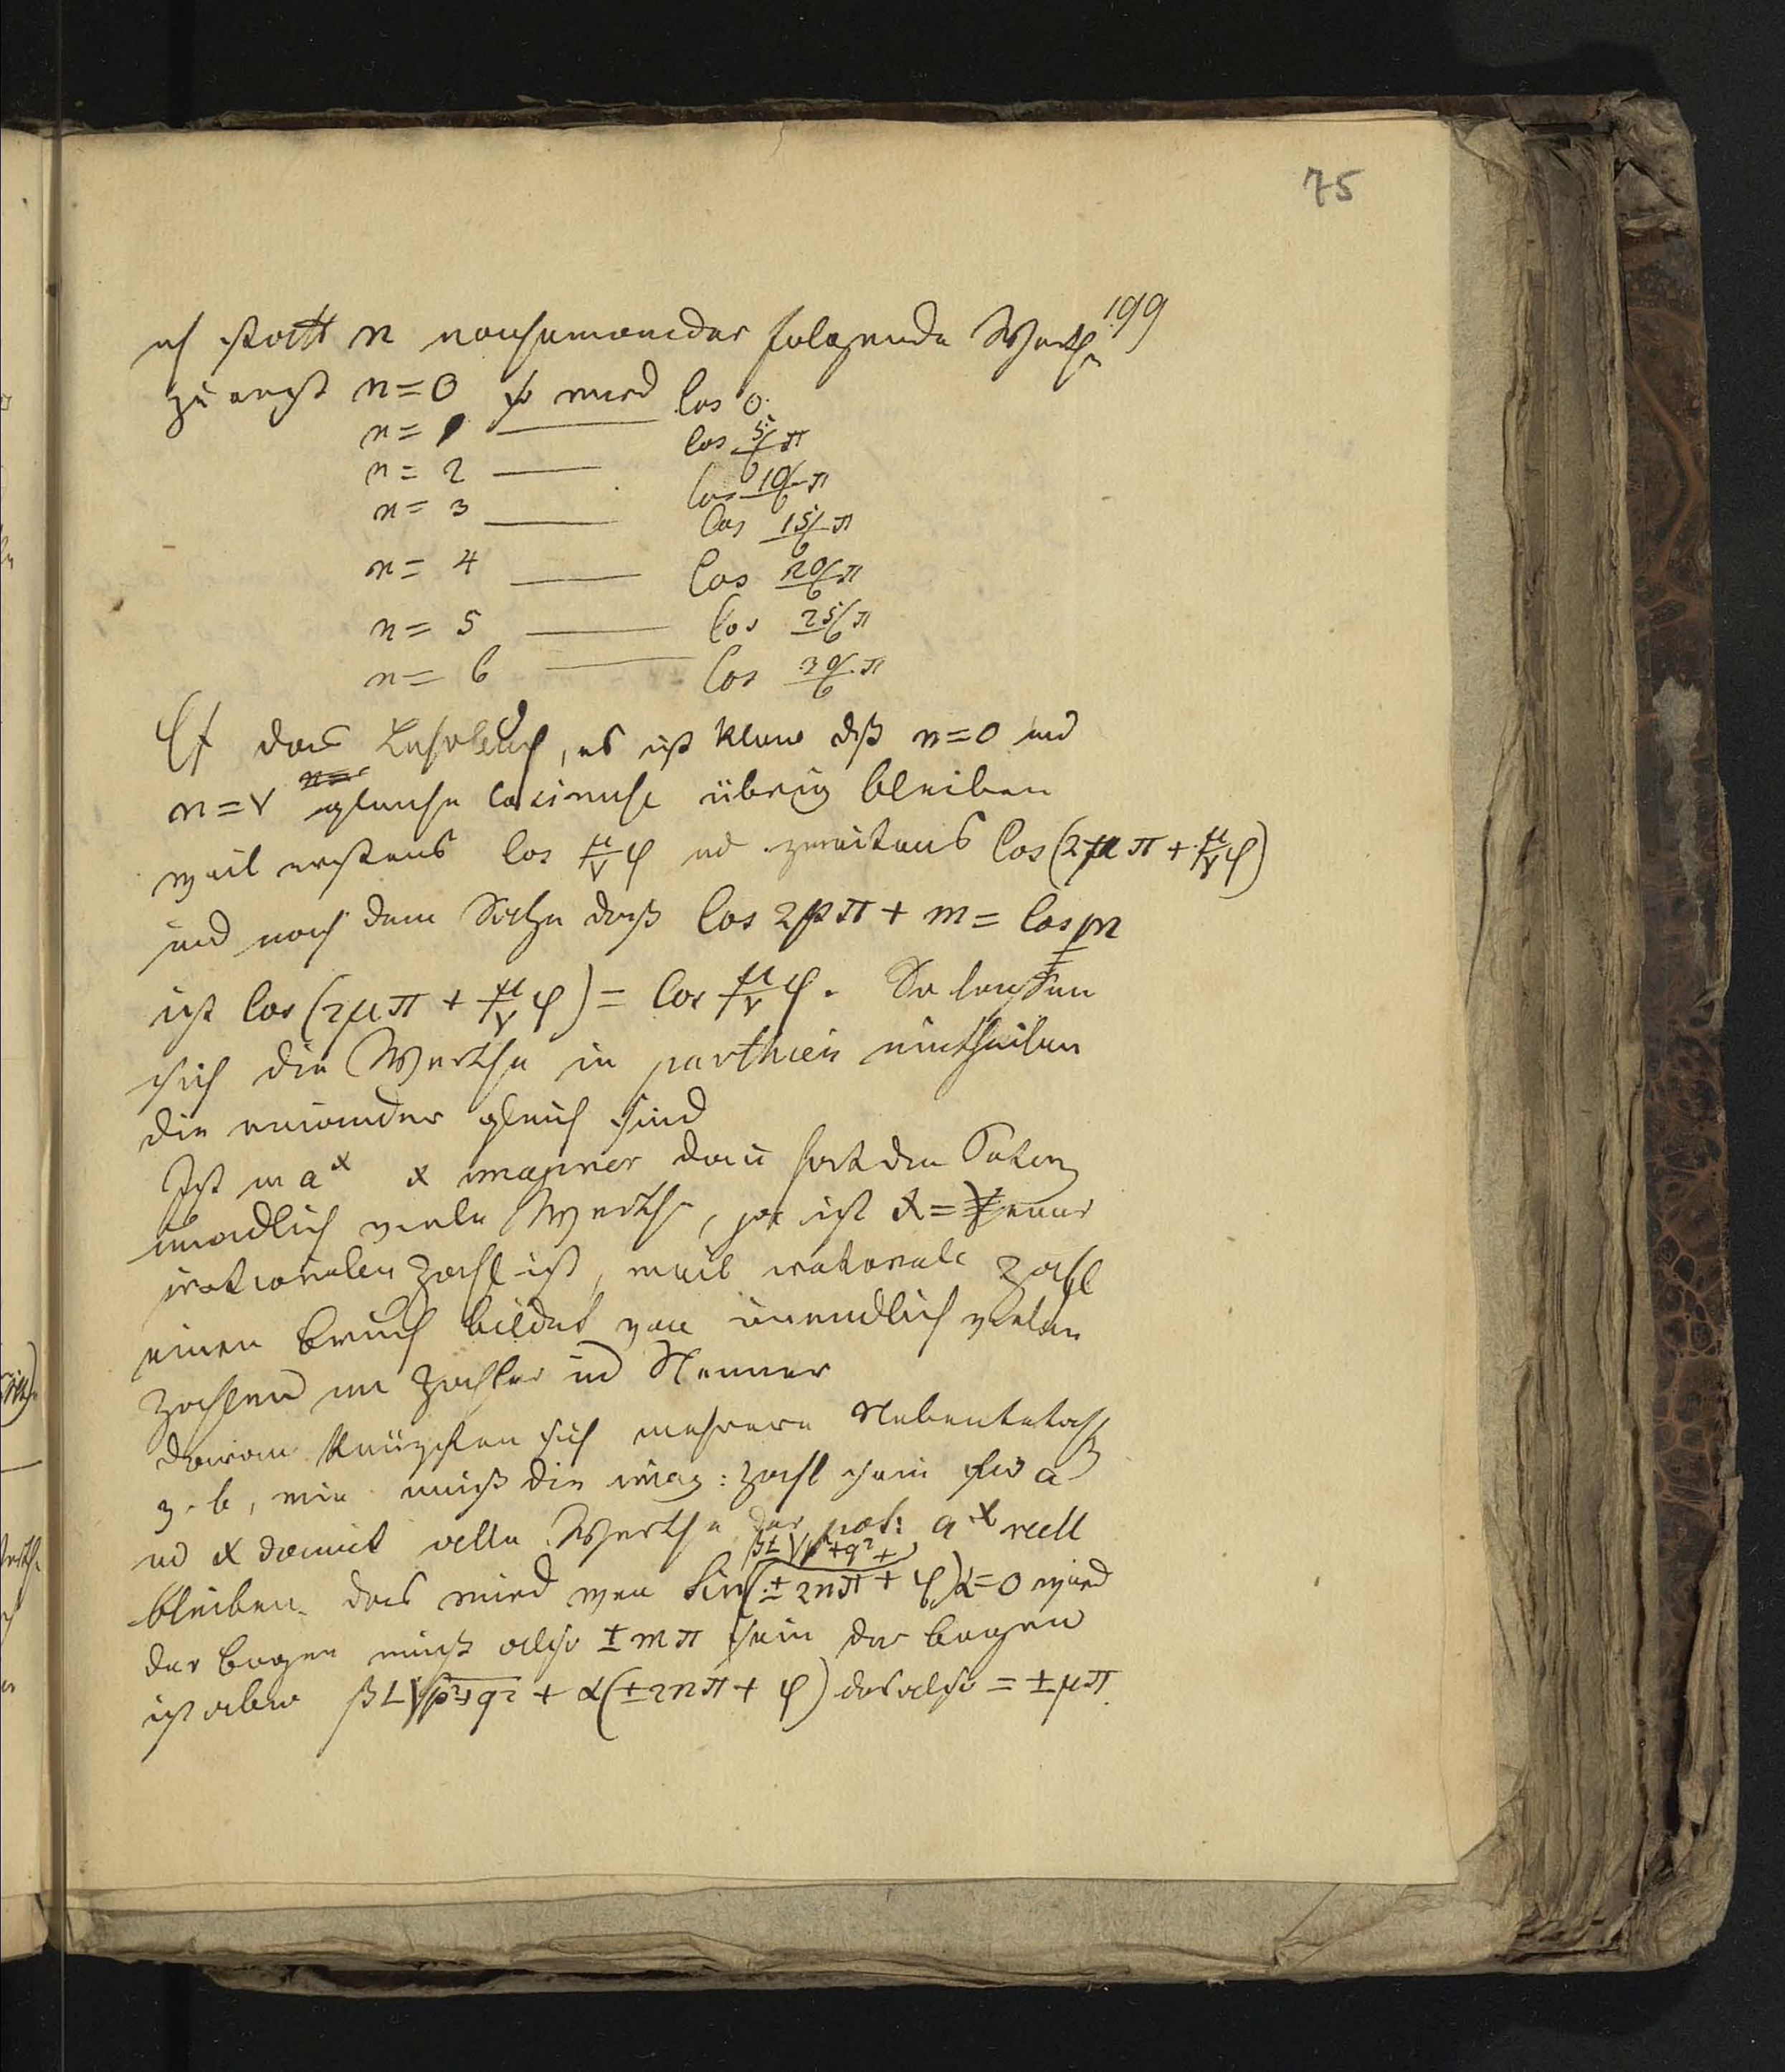 75
199
ich statt n nacheinander folgende Werthe
zuerst n=0 so wird Cos 0.
n=1 — Cos 5/6 π
n=2 — Cos 10/6 π
n=3 — Cos 15/6 π
n=4 — Cos 20/6 π
n=5 — Cos 25/6 π
n=6 — Cos 30/6 π
Cf das Lehrbuch, es ist klar dß n=0 und
n=ν gleiche Cosinuse übrig bleiben
weil erstens Cos μ/ν φ und zweitens Cos(2μπ + μ/ν φ)
und nach dem Satze daß Cos 2pπ + m = Cos m
ist Cos(2μπ + μ/ν φ) = Cos μ/ν φ. So lassen
sich die Werthe in parthien eintheilen
die einander gleich sind
Ist in a^x x imaginär dan hat die Poten
unendlich viele Werthe, ist x = einer
irationalen Zahl ist, weil irationale Zahl
einen Bruch bildet von unendlich vielen
Zahlen im Zähler und Nenner
daran knüpfen sich mehrere
z. b, wie muß die imag: Zahl sein für a
und x damit alle Werthe der pot: a^x reell
βL√p²+q² +
bleiben. das wird wen Sin(±2nπ + φ)α=0 wird
der bogen muß also ±mπ sein der bogen
ist aber βL√p²+q² + α(±2nπ + φ) das also = ±μπ